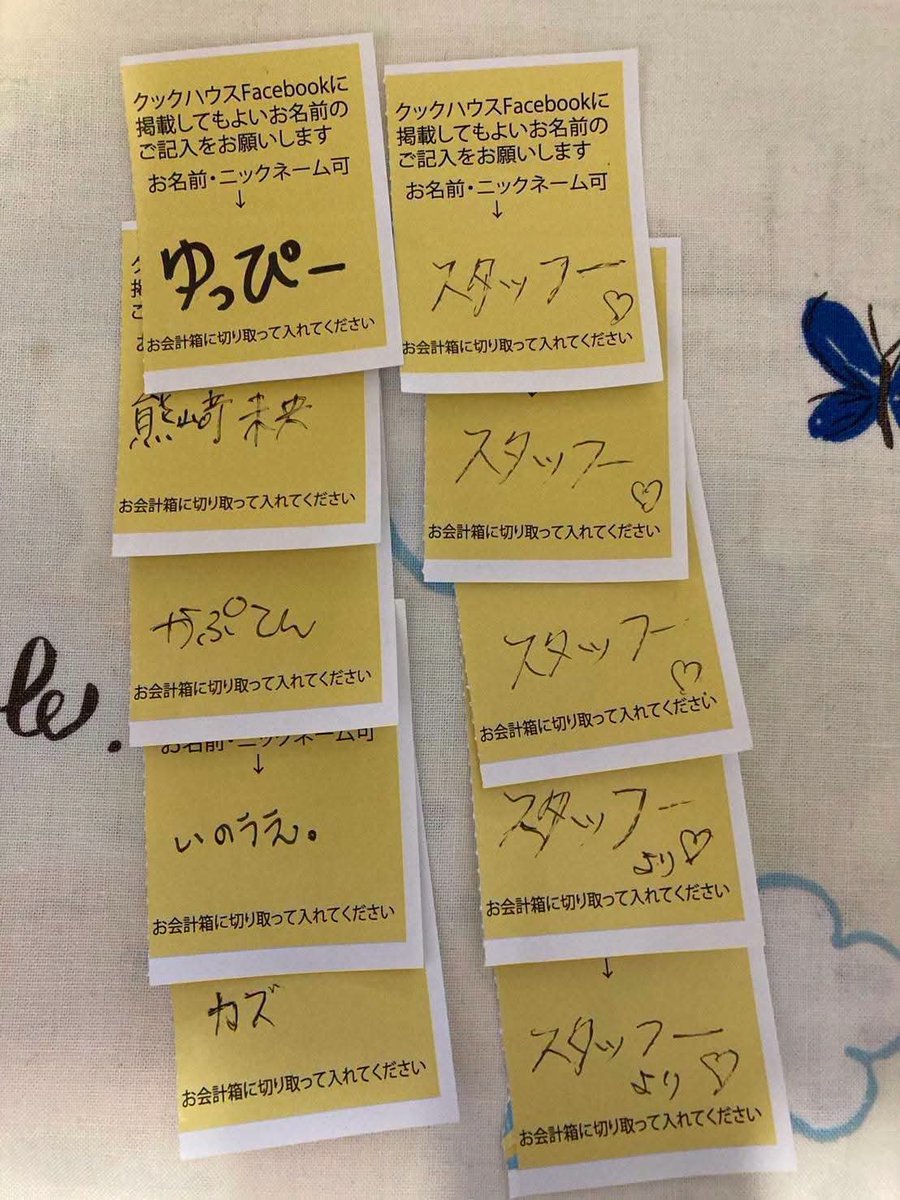 クックハウスFacebookに
掲載してもよいお名前の
ご記入をお願いします
お名前・ニックネーム可
↓
ゆっぴー
お会計箱に切り取って入れてください
熊崎未央
お会計箱に切り取って入れてください
かぷてん
お会計箱に切り取って入れてください
お名前・ニックネーム可
↓
いのうえ。
お会計箱に切り取って入れてください
カズ
お会計箱に切り取って入れてください
クックハウスFacebookに
掲載してもよいお名前の
ご記入をお願いします
お名前・ニックネーム可
↓
スタッフー♡
お会計箱に切り取って入れてください
スタッフー
♡
お会計箱に切り取って入れてください
スタッフー
♡
お会計箱に切り取って入れてください
スタッフー
より♡
お会計箱に切り取って入れてください
↓
スタッフー
より♡
お会計箱に切り取って入れてください